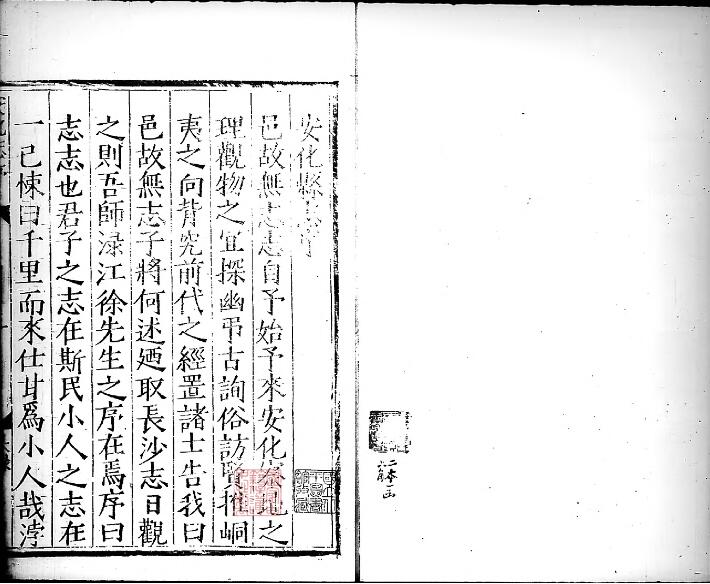 安化縣志序
邑故無志志自予始予來安化察紀之
理觀物之宜探幽弔古詢俗訪賢推峒
夷之向背究前代之經置諸士告我曰
邑故無志子將何述廼取長沙志日觀
之則吾師淥江徐先生之序在焉序曰
志志也君子之志在斯民小人之志在
一己悚曰千里而來仕甘爲小人哉浡
二本